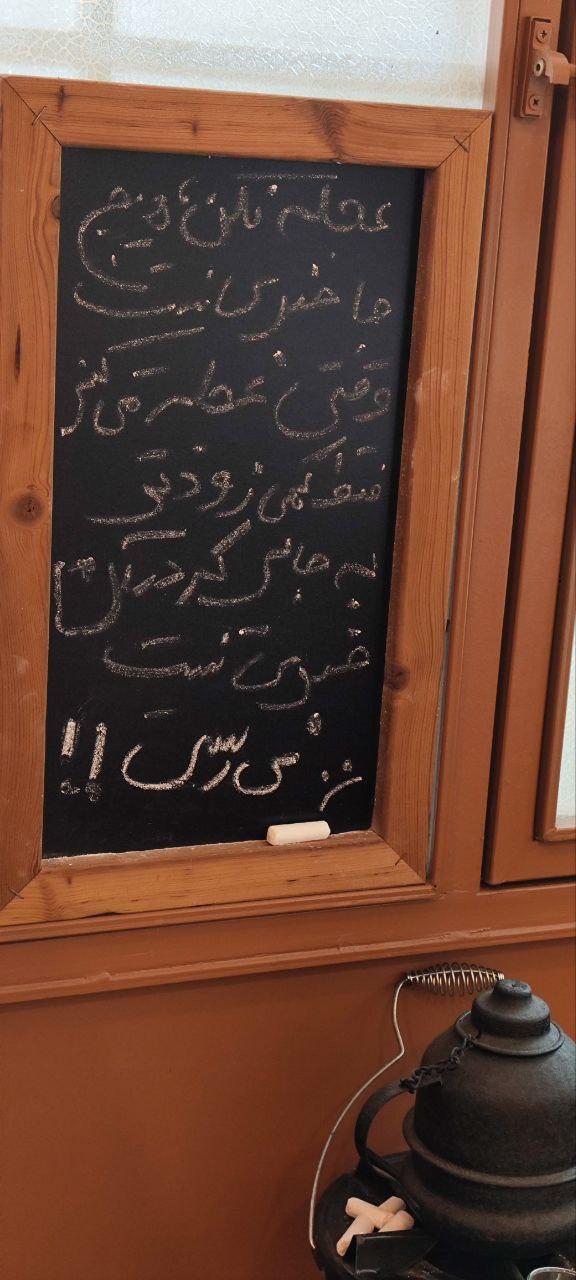 عجله نکن، هیچ
جا خبری نیست
وقتی عجله می‌کنی
فقط کمی زودتر
به جایی که در آن
خبری نیست
می رسی !!